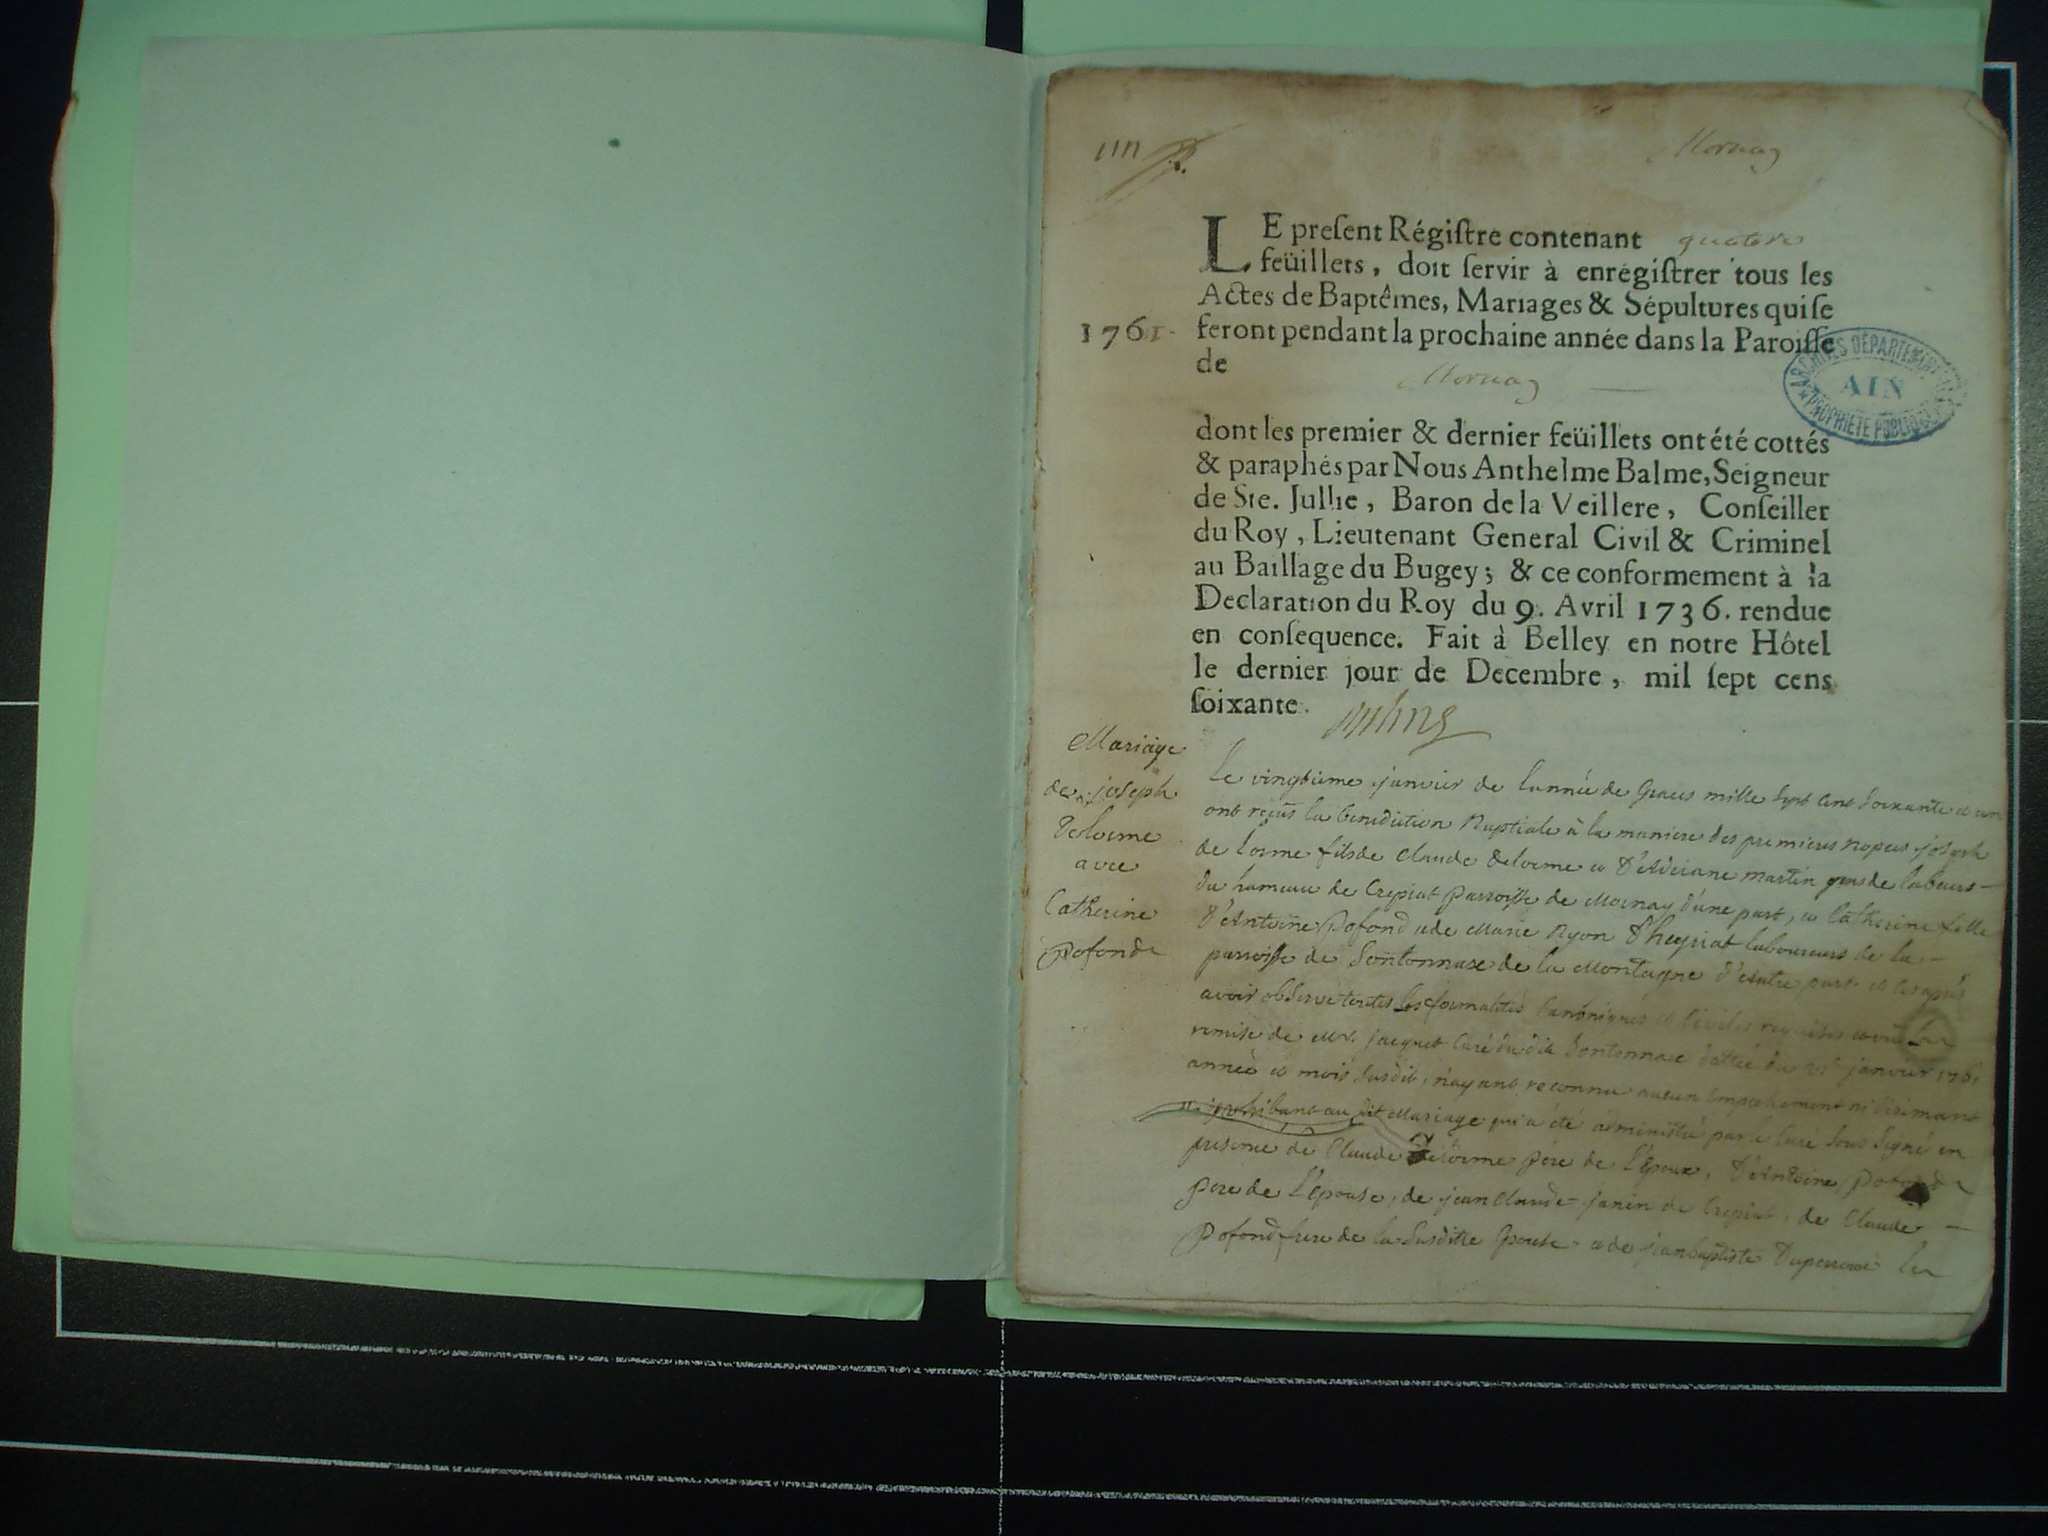 Mornay
LE present Régistre contenant quatre
feüillets, doit servir à enrégistrer tous les
Actes de Baptêmes, Mariages & Sépultures qui se
1761.
feront pendant la prochaine année dans la Paroisse
de Mornay
ARCHIVES DÉPARTEMENTALES
AIN
PROPRIÉTÉ PUBLIQUE
dont les premier & dernier feüillets ont été cottés
& paraphés par Nous Anthelme Balme, Seigneur
de Ste. Jullie, Baron de la Veillere, Conseiller
du Roy, Lieutenant General Civil & Criminel
au Baillage du Bugey; & ce conformement à la
Declaration du Roy du 9. Avril 1736. rendue
en consequence. Fait à Belley en notre Hôtel
le dernier jour de Decembre, mil sept cens
soixante.
Mariage
de joseph
Delorme
avec
Catherine
pofond
Le vingtieme janvier de l'année de Grace mille sept cent soixante et un
ont reçus la benediction Nuptiale à la maniere des premieres nopces joseph
de lorme fils de Claude delorme et d'Adriane martin gens de labeurs
du hameau de Crepiat parroisse de Mornay d'une part, et Catherine fille
d'Antoine pofond et de Marie Nyon d'heyriat laboureurs de la
parroisse de Sontonnax de la Montagne d'autre part et ce après
avoir observé toutes les formalités Canoniques et Civiles requises
remise de Mr. jacquet Curé du dit Sontonnax dattée du janvier 1761
année et mois susdit, n'ayant reconnu aucun empechement ni dirimant
ni prohibant au dit Mariage qui a été administré par le Curé sous signé en
presence de Claude delorme pere de l'époux, d'Antoine pofond
pere de l'épouse, de jean Claude janin de Crepiat, de Claude
pofond frere de la susditte épouse et de jean baptiste